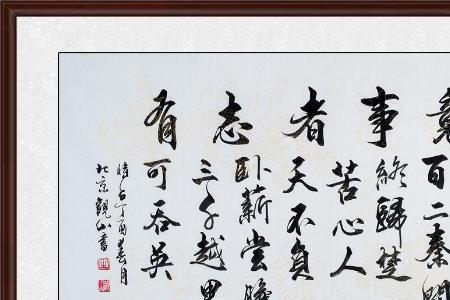 有志者事竟
百二秦關
終歸楚
苦心人
天不負
卧薪嘗膽
三千越甲
可吞吴
時在丁酉春月
北京觀山書